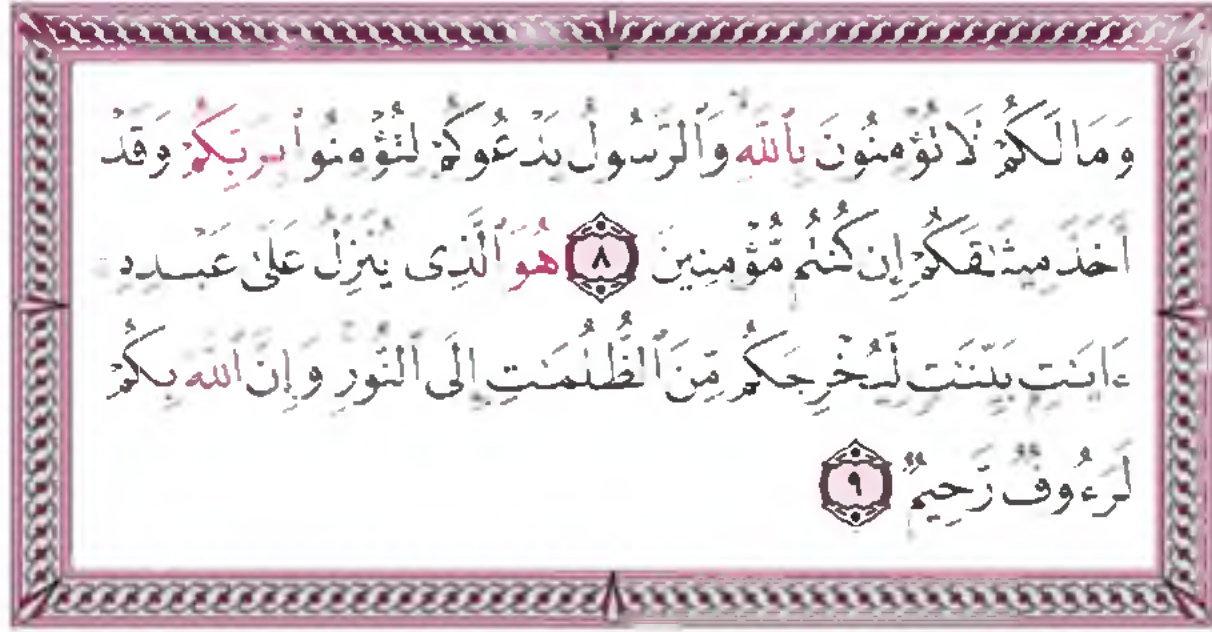 وَمَا لَكُمْ لَا تُؤْمِنُونَ بِٱللَّهِ ۙ وَٱلرَّسُولُ يَدْعُوكُمْ لِتُؤْمِنُوا۟ بِرَبِّكُمْ وَقَدْ
أَخَذَ مِيثَٰقَكُمْ إِن كُنتُم مُّؤْمِنِينَ ٨ هُوَ ٱلَّذِى يُنَزِّلُ عَلَىٰ عَبْدِهِۦٓ
ءَايَٰتٍۭ بَيِّنَٰتٍ لِّيُخْرِجَكُم مِّنَ ٱلظُّلُمَٰتِ إِلَى ٱلنُّورِ ۚ وَإِنَّ ٱللَّهَ بِكُمْ
لَرَءُوفٌ رَّحِيمٌ ٩